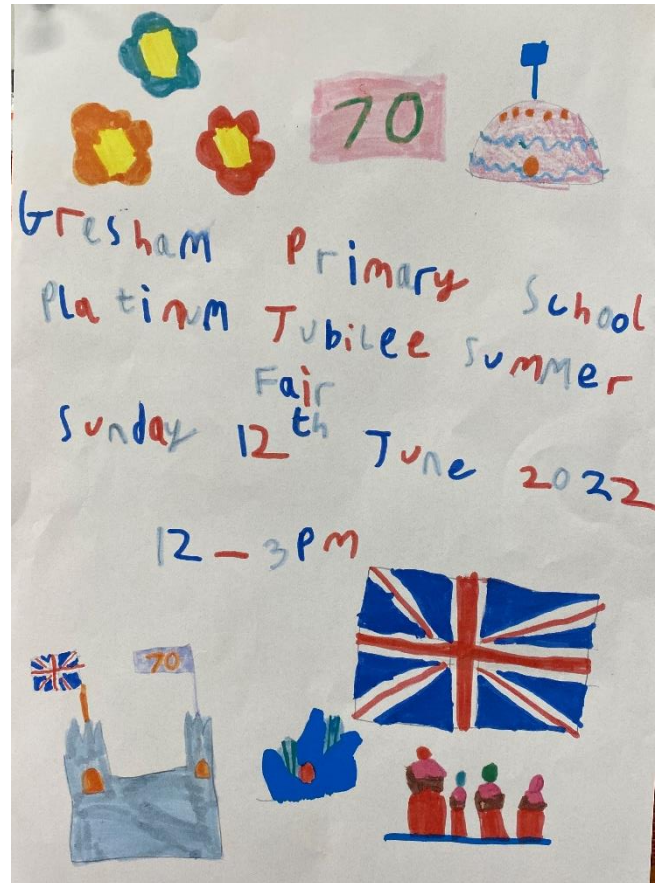 70
Gresham Primary School
Platinum Jubilee Summer
Fair
Sunday 12th June 2022
12 - 3PM
70